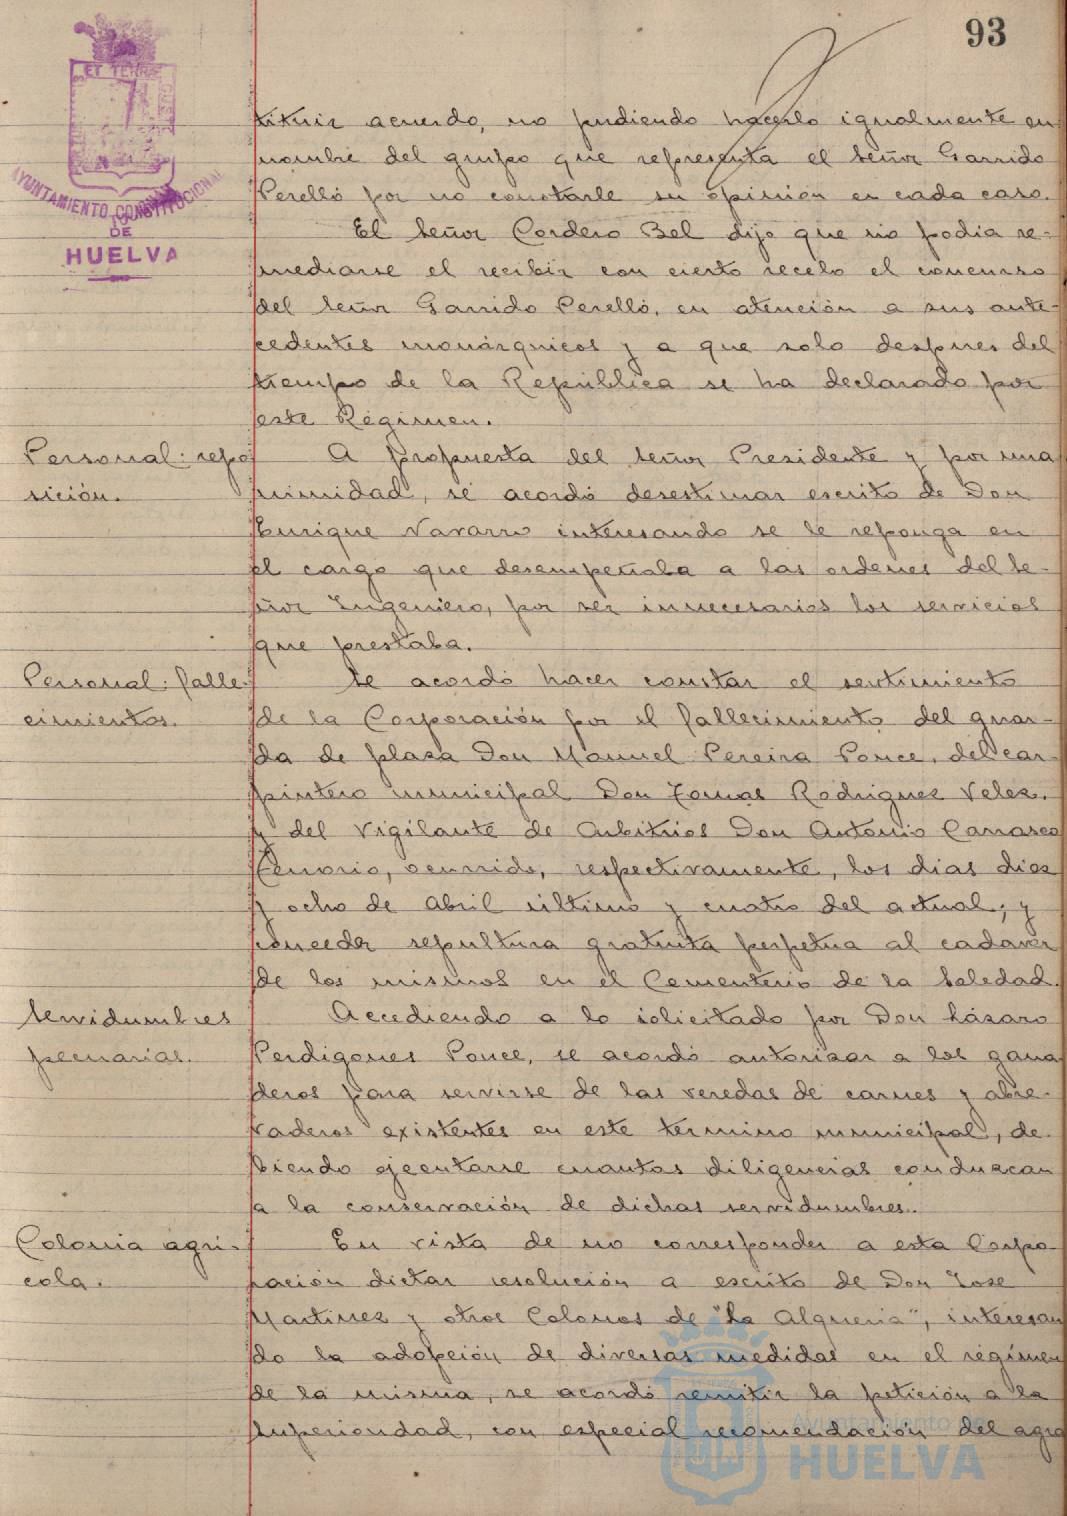 93
ET TERRÆ
AYUNTAMIENTO CONSTITUCIONAL
DE
HUELVA
tituir acuerdo, no pudiendo hacerlo igualmente en
nombre del grupo que representa el Señor Garrido
Perelló por no constarle su opinión en cada caso.
El Señor Cordero Bel dijo que no podia re-
mediarse el recibir con cierto recelo el concurso
del Señor Garrido Perelló, en atención a sus ante-
cedentes monárquicos y a que solo despues del
tiempo de la República se ha declarado por
este Régimen.
Personal: repo
sición.
A propuesta del Señor Presidente y por una
nimidad, se acordó desestimar escrito de Don
Enrique Navarro interesando se le reponga en
el cargo que desempeñaba a las ordenes del Se-
ñor Ingeniero, por ser innecesarios los servicios
que prestaba.
Personal: falle-
cimientos.
Se acordó hacer constar el sentimiento
de la Corporación por el fallecimiento del guar-
da de plaza Don Manuel Pereira Ponce, del car-
pintero municipal Don Tomas Rodriguez Velez,
y del Vigilante de Arbitrios Don Antonio Carrasco
Tenorio, ocurrido, respectivamente, los dias diez
y ocho de Abril último y cuatro del actual; y
conceder sepultura gratuita perpetua al cadaver
de los mismos en el Cementerio de la Soledad.
Servidumbres
pecuarias.
Accediendo a lo solicitado por Don Lázaro
Perdigones Ponce, se acordó autorizar a los gana
deros para servirse de las veredas de carnes y abre-
vaderos existentes en este termino municipal, de-
biendo ejecutarse cuantas diligencias conduzcan
a la conservación de dichas servidumbres.
Colonia agri-
cola.
En vista de no corresponder a esta Corpo-
ración dictar resolución a escrito de Don Jose
Martinez y otros Colonos de "La Alqueria", interesan
do la adopción de diversas medidas en el regimen
de la misma, se acordó remitir la petición a la
Superioridad, con especial recomendación del agra
Ayuntamiento de
HUELVA